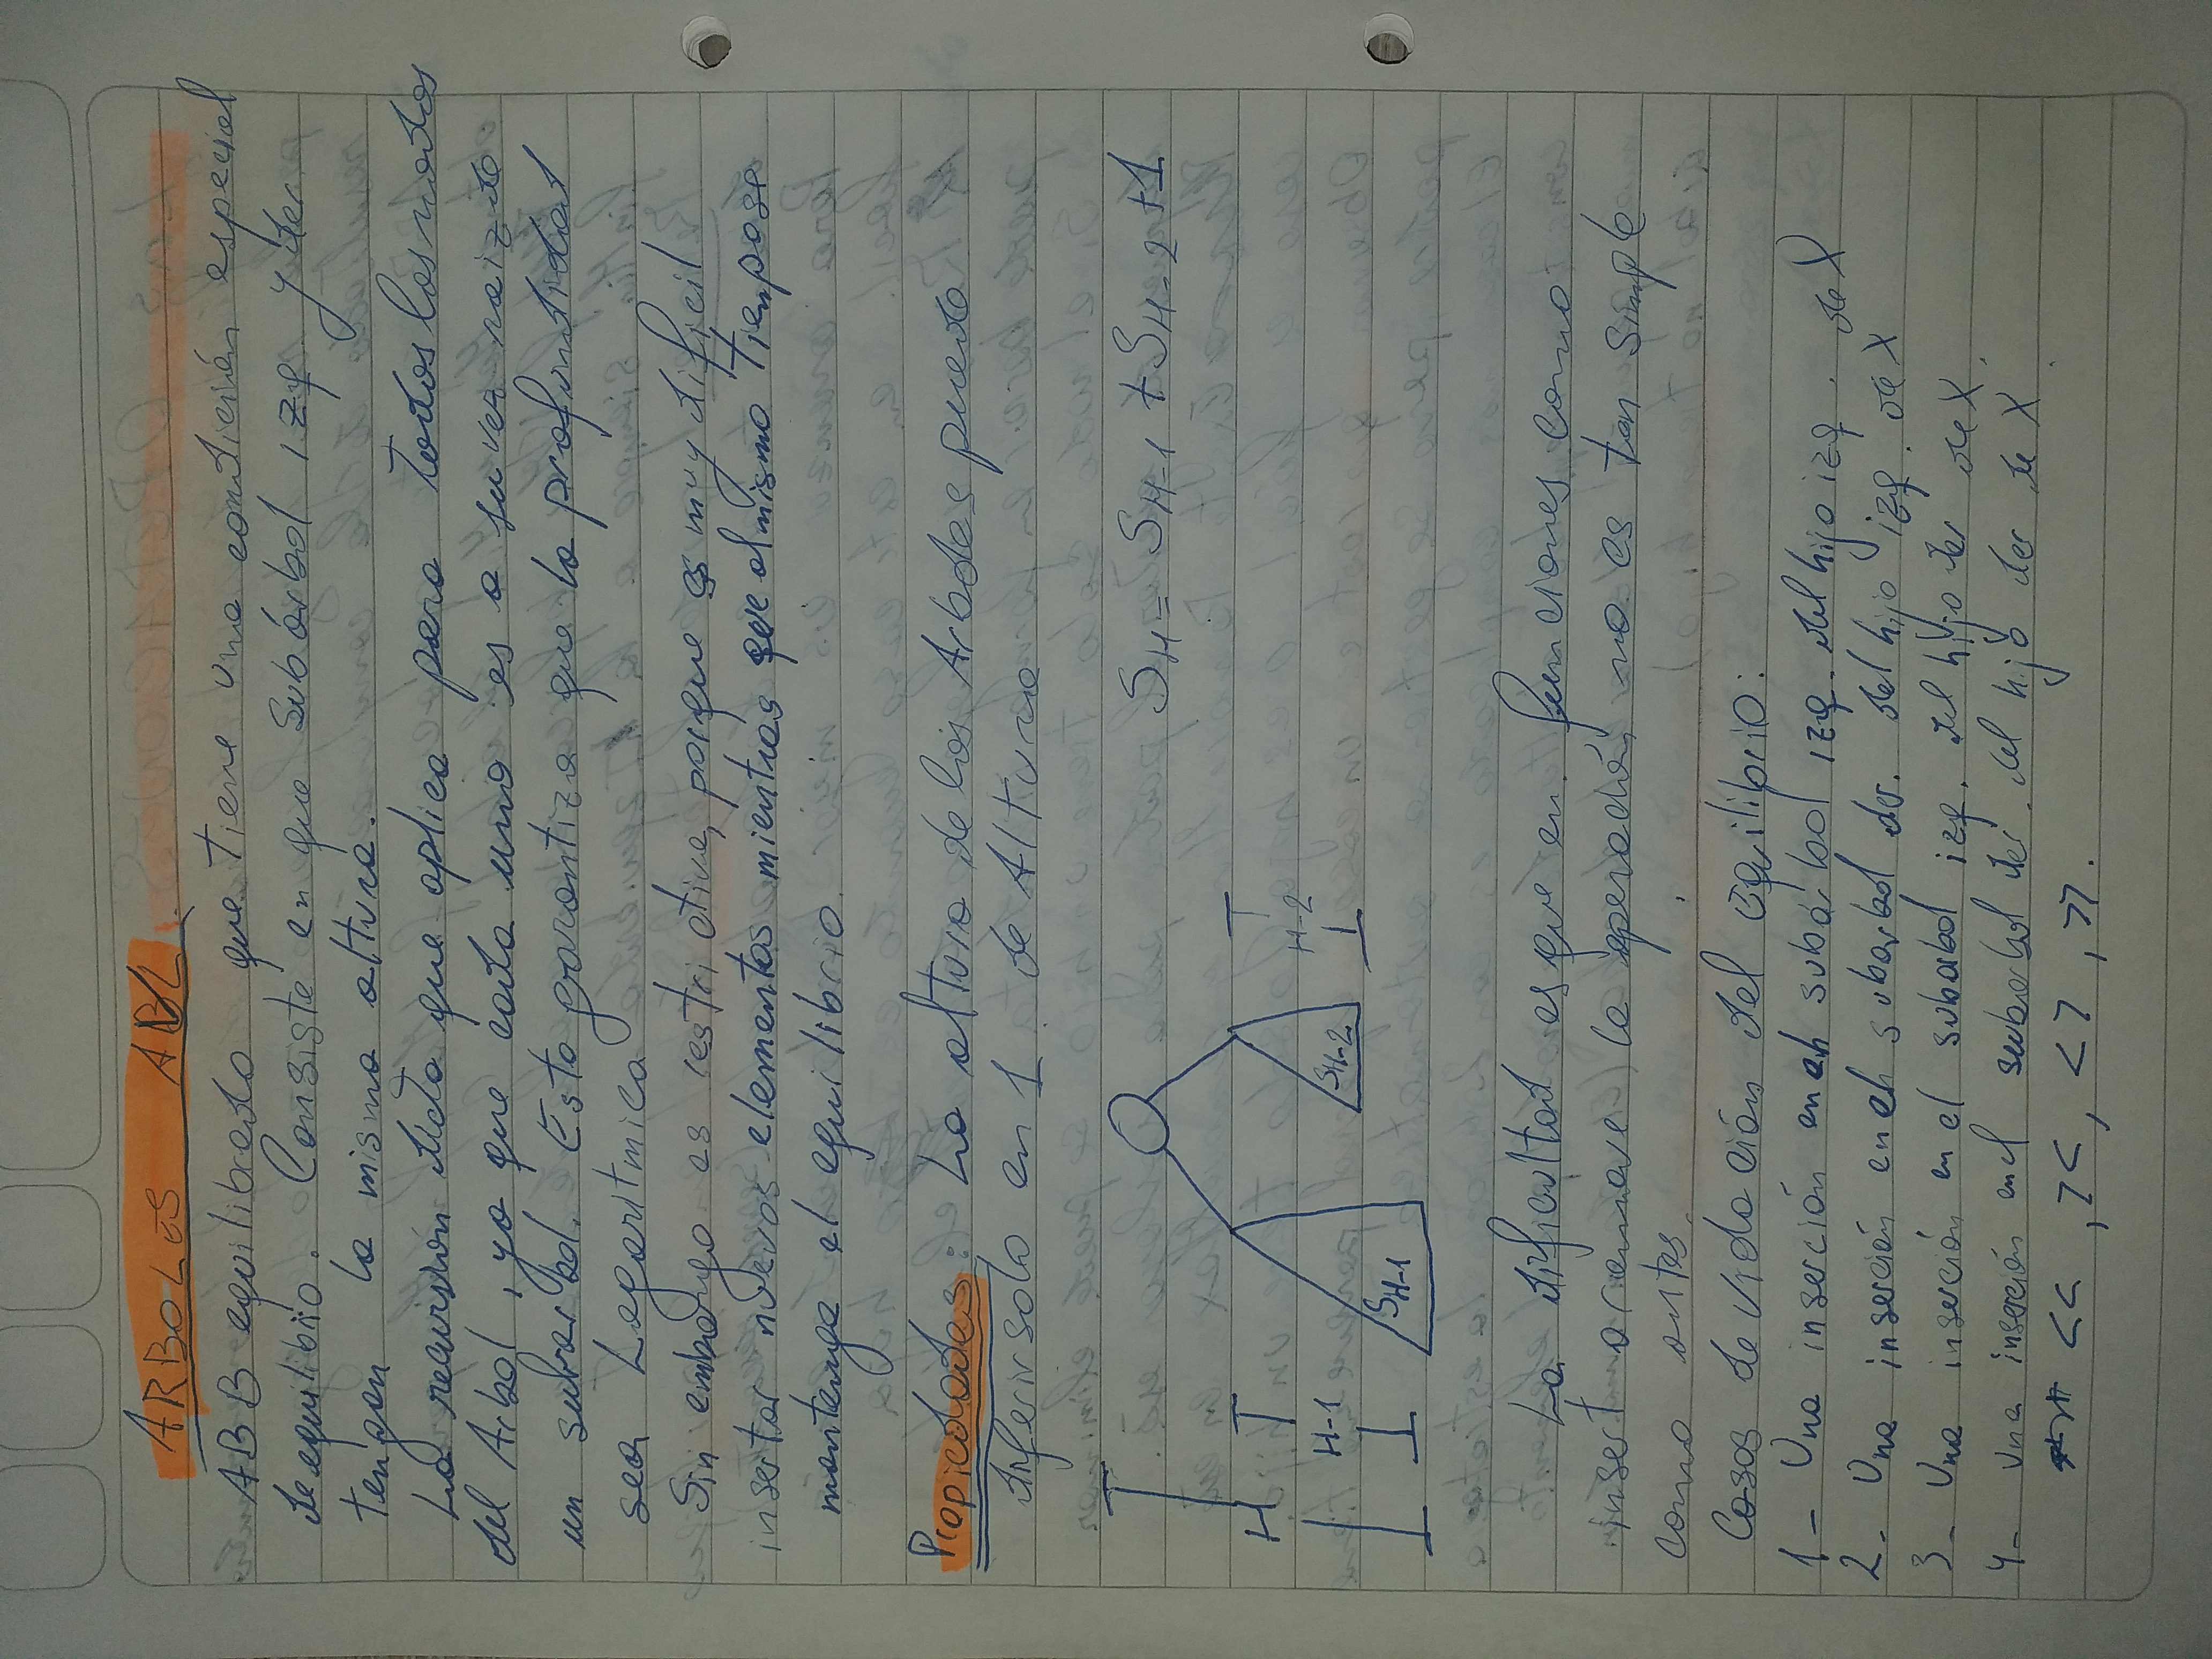 ARBOLES AVL
ABB equilibrado que tiene una condición especial
de equilibrio. Consiste en que subárbol izq y der
tengan la misma altura.
La recursión dicta que aplica para todos los nodos
del Arbol, ya que cada uno es a su vez raiz de
un subarbol. Esto garantiza que la profundidad
sea Logaritmica
Sin embargo es restrictiva, porque es muy dificil
insertar nuevos elementos mientras que al mismo tiempo se
mantenga el equilibrio.
Propiedades: La altura de los Arboles puede
diferir solo en 1 de Altura
S_H = S_H-1 + S_H-2 + 1
H
H-1
H-2
S_H-2
S_H-1
La dificultad es que en funciones como
insert o remove la operación no es tan simple
como antes.
Casos de violación del equilibrio:
1- Una inserción en el subárbol izq. del hijo izq. de X
2- Una inserción en el subarbol der. del hijo izq. de X
3- Una inserción en el subarbol izq. del hijo der de X.
4- Una inserción en el subarbol der. del hijo der de X.
<<, ><, <>, >>.